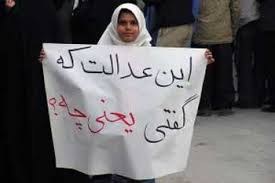 این عدالت که
گفتی یعنی چه؟